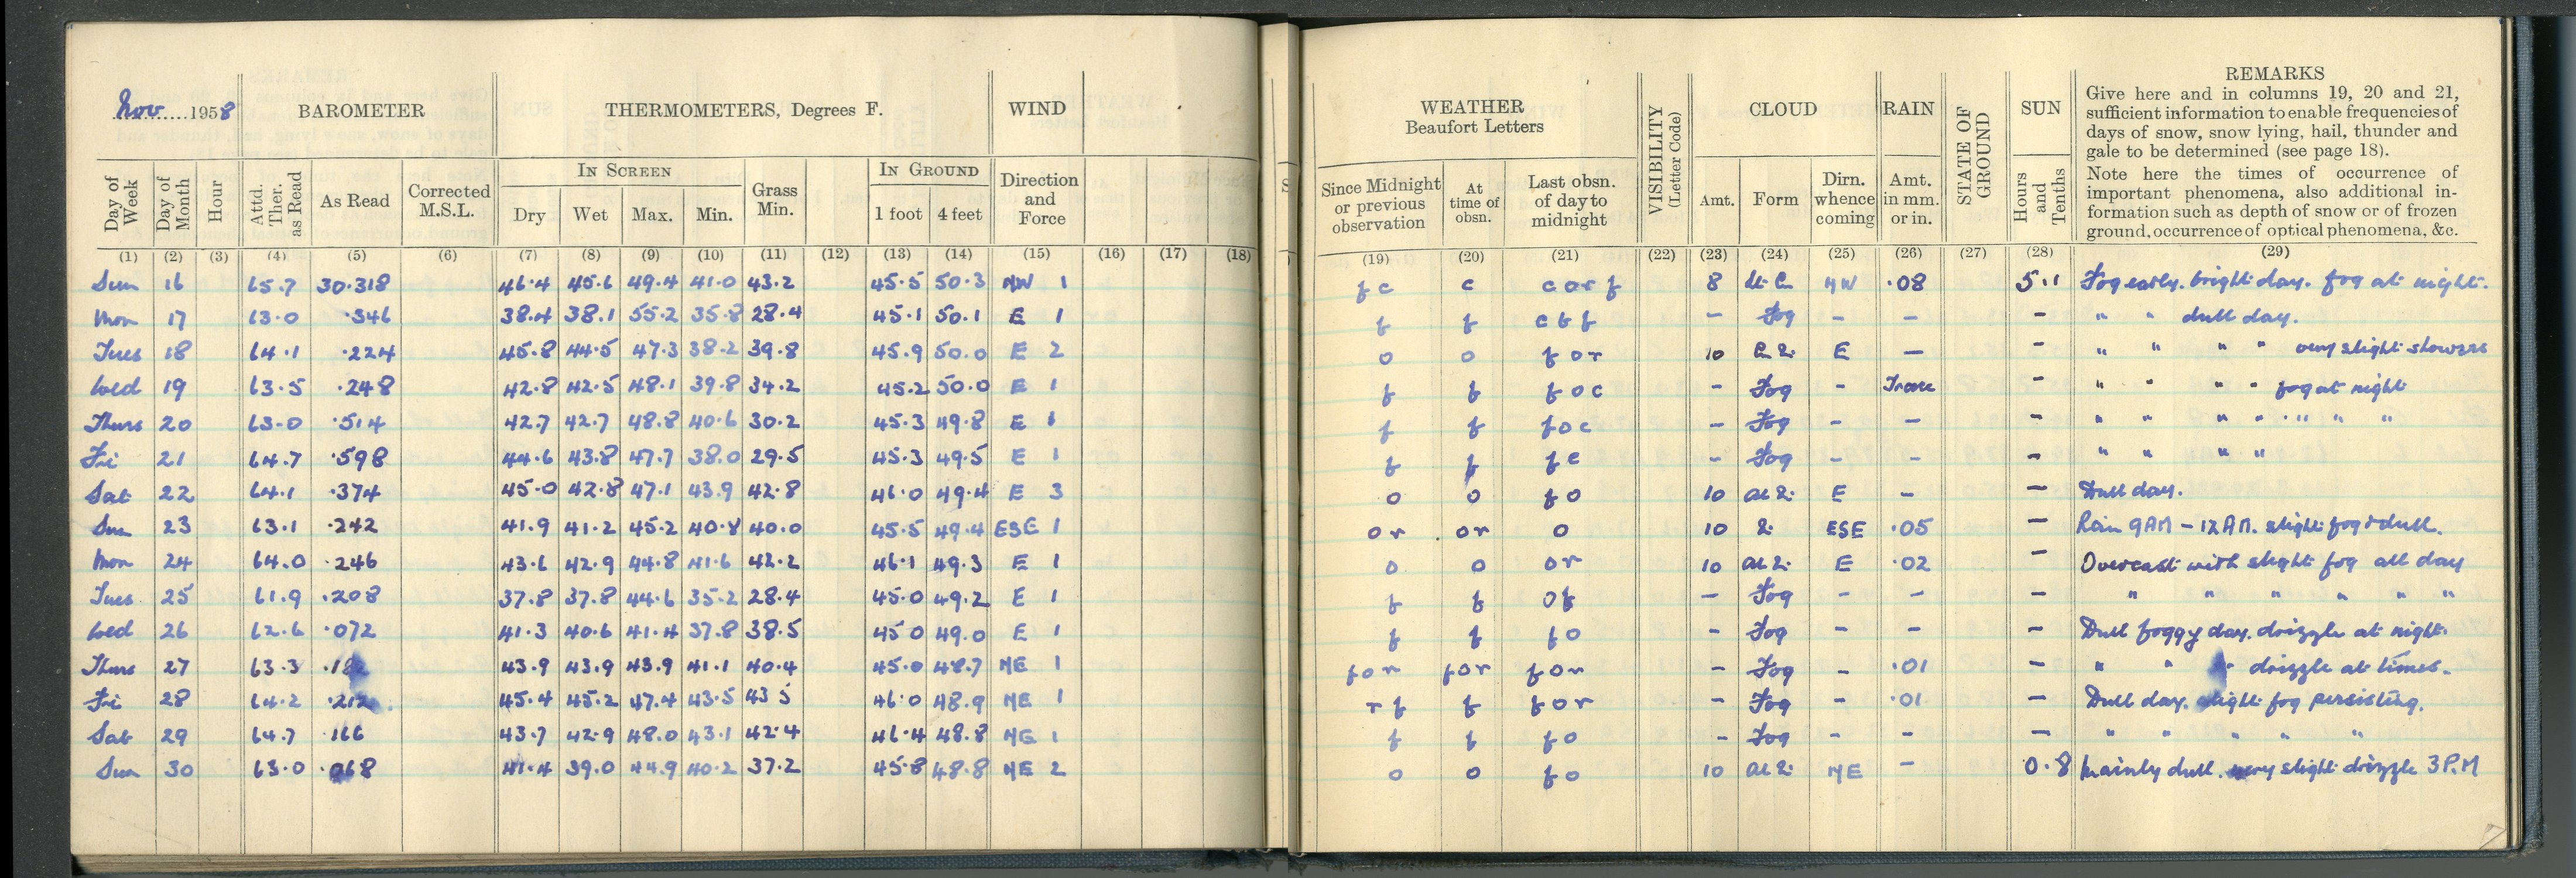 Nov 1958 BAROMETER THERMOMETERS, Degrees F. WIND
Day of Week Day of Month Hour Attd. Ther. as Read As Read Corrected M.S.L. IN SCREEN Dry Wet Max. Min. Grass Min. IN GROUND 1 foot 4 feet Direction and Force
(1) (2) (3) (4) (5) (6) (7) (8) (9) (10) (11) (12) (13) (14) (15) (16) (17) (18)
Sun 16 65.7 30.318 46.4 45.6 49.4 41.0 43.2 45.5 50.3 NW 1
Mon 17 63.0 .346 38.4 38.1 55.2 35.8 28.4 45.1 50.1 E 1
Tues 18 64.1 .224 45.8 44.5 47.3 38.2 39.8 45.9 50.0 E 2
Wed 19 63.5 .248 42.8 42.5 48.1 39.8 34.2 45.2 50.0 E 1
Thurs 20 63.0 .514 42.7 42.7 48.8 40.6 30.2 45.3 49.8 E 1
Fri 21 64.7 .598 44.6 43.8 47.7 38.0 29.5 45.3 49.5 E 1
Sat 22 64.1 .374 45.0 42.8 47.1 43.9 42.8 46.0 49.4 E 3
Sun 23 63.1 .242 41.9 41.2 45.2 40.8 40.0 45.5 49.4 ESE 1
Mon 24 64.0 .246 43.6 42.9 44.8 41.6 42.2 46.1 49.3 E 1
Tues 25 61.9 .208 37.8 37.8 44.6 35.2 28.4 45.0 49.2 E 1
Wed 26 62.6 .072 41.3 40.6 41.4 37.8 38.5 45 0 49.0 E 1
Thurs 27 63.3 43.9 43.9 43.9 41.1 40.4 45.0 48.7 NE 1
Fri 28 64.2 .212 45.4 45.2 47.4 43.5 43 5 46.0 48.9 NE 1
Sat 29 64.7 .166 43.7 42.9 48.0 43.1 42.4 46.4 48.8 NE 1
Sun 30 63.0 .068 41.4 39.0 44.9 40.2 37.2 45.8 48.8 NE 2
WEATHER Beaufort Letters VISIBILITY (Letter Code) CLOUD RAIN STATE OF GROUND SUN REMARKS
Give here and in columns 19, 20 and 21,
sufficient information to enable frequencies of
days of snow, snow lying, hail, thunder and
gale to be determined (see page 18).
Note here the times of occurrence of
important phenomena, also additional in-
formation such as depth of snow or of frozen
ground, occurrence of optical phenomena, &c.
Since Midnight or previous observation At time of obsn. Last obsn. of day to midnight Amt. Form Dirn. whence coming Amt. in mm. or in. Hours and Tenths
(19) (20) (21) (22) (23) (24) (25) (26) (27) (28) (29)
f c c c o r f 8 St. C. NW .08 5.1 Fog early. bright day. fog at night.
f f c b f - Fog - - - " " dull day.
o o f o r 10 E - - " " " " very slight showers
f f f o c - Fog - Trace - " " " " fog at night
f f f o c - Fog - - - " " " " " " "
f f f c - Fog - - - " " " "
o o f o 10 E - - Dull day.
o r o r o 10 ESE .05 - Rain 9AM - 12AM. slight fog & dull.
o o o r 10 E .02 - Overcast with slight fog all day
f f o f - Fog - - - " " " " " "
f f f o - Fog - - - Dull foggy day. drizzle at night.
f o r f o r f o r - Fog - .01 - " " " drizzle at times.
r f f f o r - Fog - .01 - Dull day. slight fog persisting.
f f f o - Fog - - - " " " " "
o o f o 10 NE - 0.8 Mainly dull. very slight drizzle 3P.M